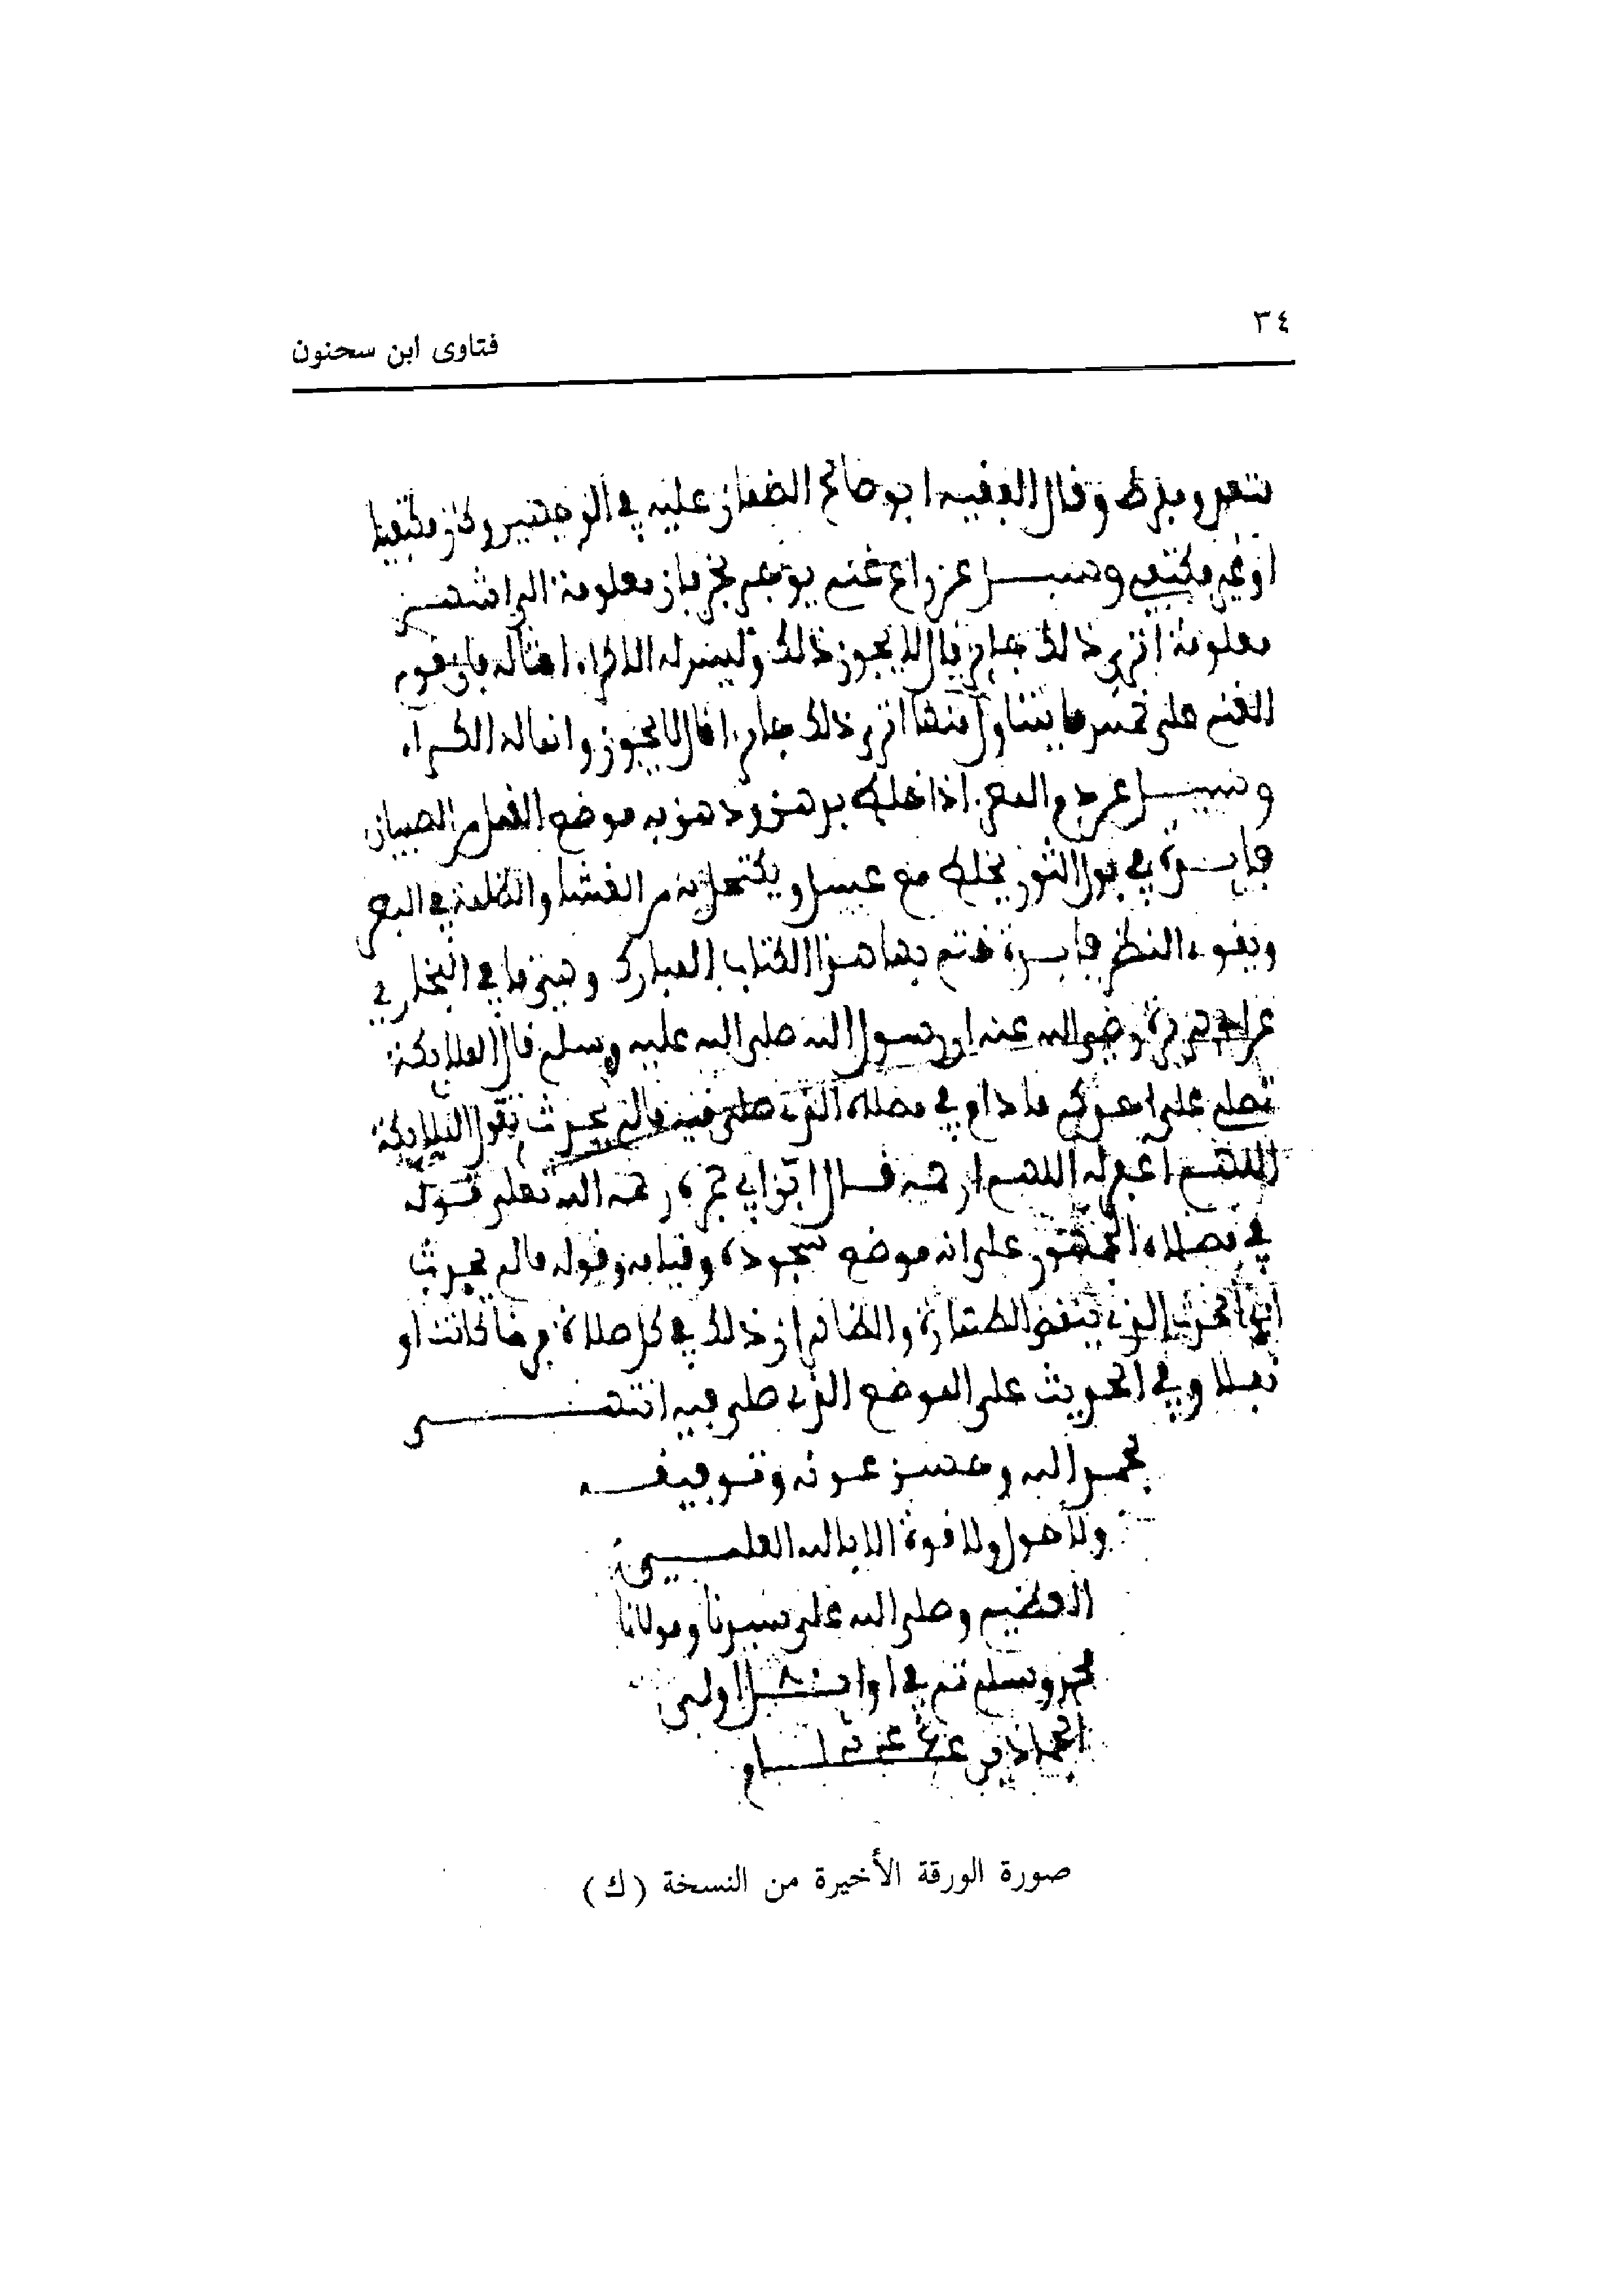 ٣٤
فتاوى ابن سحنون
وقال الفقيه ابو صالح الضمان عليه في الوجهين وكان مكتفيا
او غير مكتف وسيل عن راع غنم يوجر بخرفان معلومة الى اشهر
معلومة اترى ذلك جايز قال لا يجوز ذلك وليس له الا كراء امثاله فان يقوم
الغنم على خمس ما اترى ذلك جايز قال لا يجوز وانما له الكراء
وسيل عن اذا خلط بدهن ودهن به موضع القمل من الصبيان
فايدة في بول الثور يخلط مع عسل ويكتحل به من الغشا والظلمة في البصر
ويقوي النظر فايدة نختم بها هذا الكتاب المبارك وهي ما في البخاري
عن ابي هريرة رضي الله عنه ان رسول الله صلى الله عليه وسلم قال الملايكة
تصلي على احدكم ما دام في مصلاه الذي صلى فيه ما لم يحدث تقول الملايكة
اللهم اغفر له اللهم ارحمه قال ابن ابي جمرة رحمه الله تعلى قوله
في مصلاه الجمهور على انه موضع سجوده وقيامه وقوله ما لم يحدث
اي الحدث الذي ينقض الطهارة والظاهر ان ذلك في كل صلاة فرضا كانت او
نفلا وفي الحديث على الموضع الذي صلى فيه انتهى
بحمد الله وحسن عونه وتوفيقه
ولا حول ولا قوة الا بالله العلي
العظيم وصلى الله على سيدنا ومولانا
محمد وسلم تم في اوايل اولى
الجمادين عام
صورة الورقة الأخيرة من النسخة (ك)